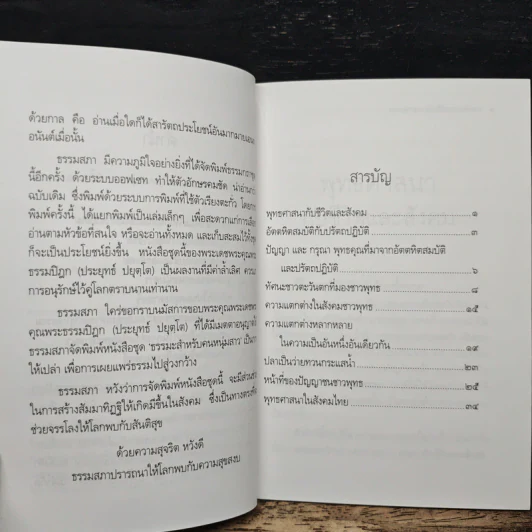 ด้วยกาล คือ อ่านเมื่อใดก็ได้สารัตถประโยชน์อันมากมาย
อนันต์เมื่อนั้น
ธรรมสภา มีความภูมิใจอย่างยิ่งที่ได้จัดพิมพ์ธรรมกถา
นี้อีกครั้ง ด้วยระบบออฟเซท ทำให้ตัวอักษรคมชัด น่าอ่าน
ฉบับเดิม ซึ่งพิมพ์ด้วยระบบการพิมพ์ที่ใช้ตัวเรียงตะกั่ว
พิมพ์ครั้งนี้ ได้แยกพิมพ์เป็นเล่มเล็กๆ เพื่อสะดวกแก่การ
อ่านตามหัวข้อที่สนใจ หรือจะอ่านทั้งหมด และเก็บสะสมไว้
ก็จะเป็นประโยชน์ยิ่งขึ้น หนังสือชุดนี้ของพระเดชพระคุณ
ธรรมปิฎก (ประยุทธ์ ปยุตฺโต) เป็นผลงานที่มีค่าล้ำเลิศ
การอนุรักษ์ไว้คู่โลกตราบนานเท่านาน
ธรรมสภา ใคร่ขอกราบนมัสการขอบพระคุณพระเดช
คุณพระธรรมปิฎก (ประยุทธ์ ปยุตฺโต) ที่ได้มีเมตตาอนุญาต
ธรรมสภาจัดพิมพ์หนังสือชุด 'ธรรมะสำหรับคนหนุ่มสาว'
ให้เปล่า เพื่อการเผยแพร่ธรรมไปสู่วงกว้าง
ธรรมสภา หวังว่าการจัดพิมพ์หนังสือชุดนี้ จะมีส่วน
ในการสร้างสัมมาทิฏฐิให้เกิดมีขึ้นในสังคม ซึ่งเป็นทาง
ช่วยจรรโลงให้โลกพบกับสันติสุข
ด้วยความสุจริต หวังดี
ธรรมสภาปรารถนาให้โลกพบกับความสุขสงบ
สารบัญ
พุทธศาสนากับชีวิตและสังคม ๑
อัตตหิตสมบัติกับปรัตถปฏิบัติ ๓
ปัญญา และ กรุณา พุทธคุณที่มาจากอัตตหิตสมบัติ
และปรัตถปฏิบัติ ๖
ทัศนะชาวตะวันตกที่มองชาวพุทธ ๘
ความแตกต่างในสังคมชาวพุทธ ๑๕
ความแตกต่างหลากหลาย
ในความเป็นอันหนึ่งอันเดียวกัน ๑๙
ปลาเป็นว่ายทวนกระแสน้ำ ๒๓
หน้าที่ของปัญญาชนชาวพุทธ ๒๕
พุทธศาสนาในสังคมไทย ๓๔